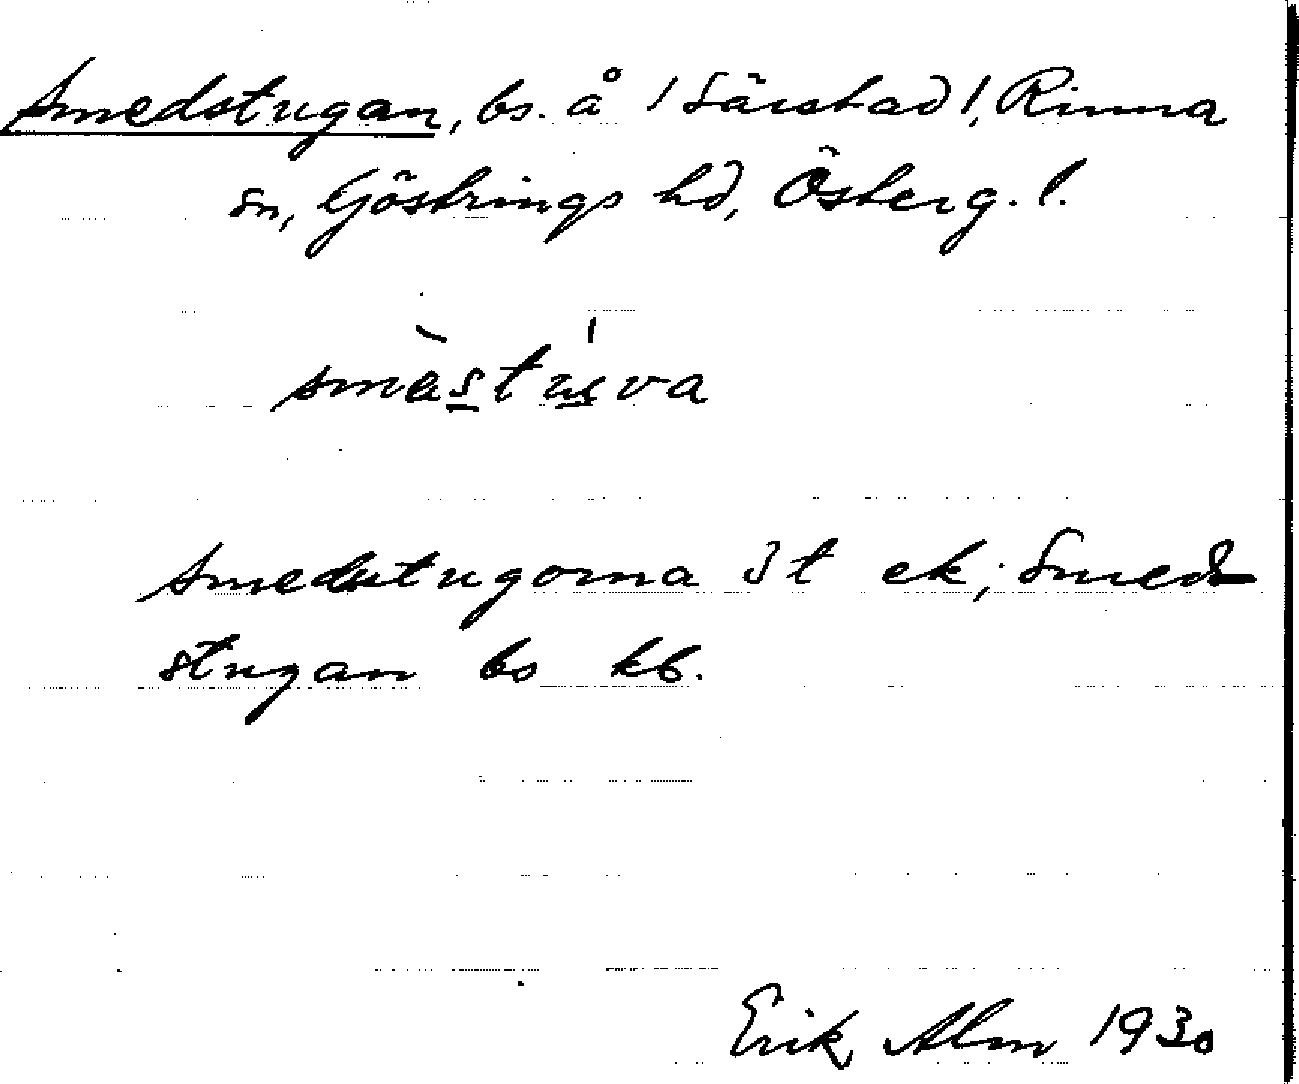 Smedstugan, bs. å /Särstad/, Rinna
sn, Göstrings hd, Österg. l.
smèstúva
Smedstugorna 3 t ek; Smed-
stugan bs kb.
Erik Alm 1930